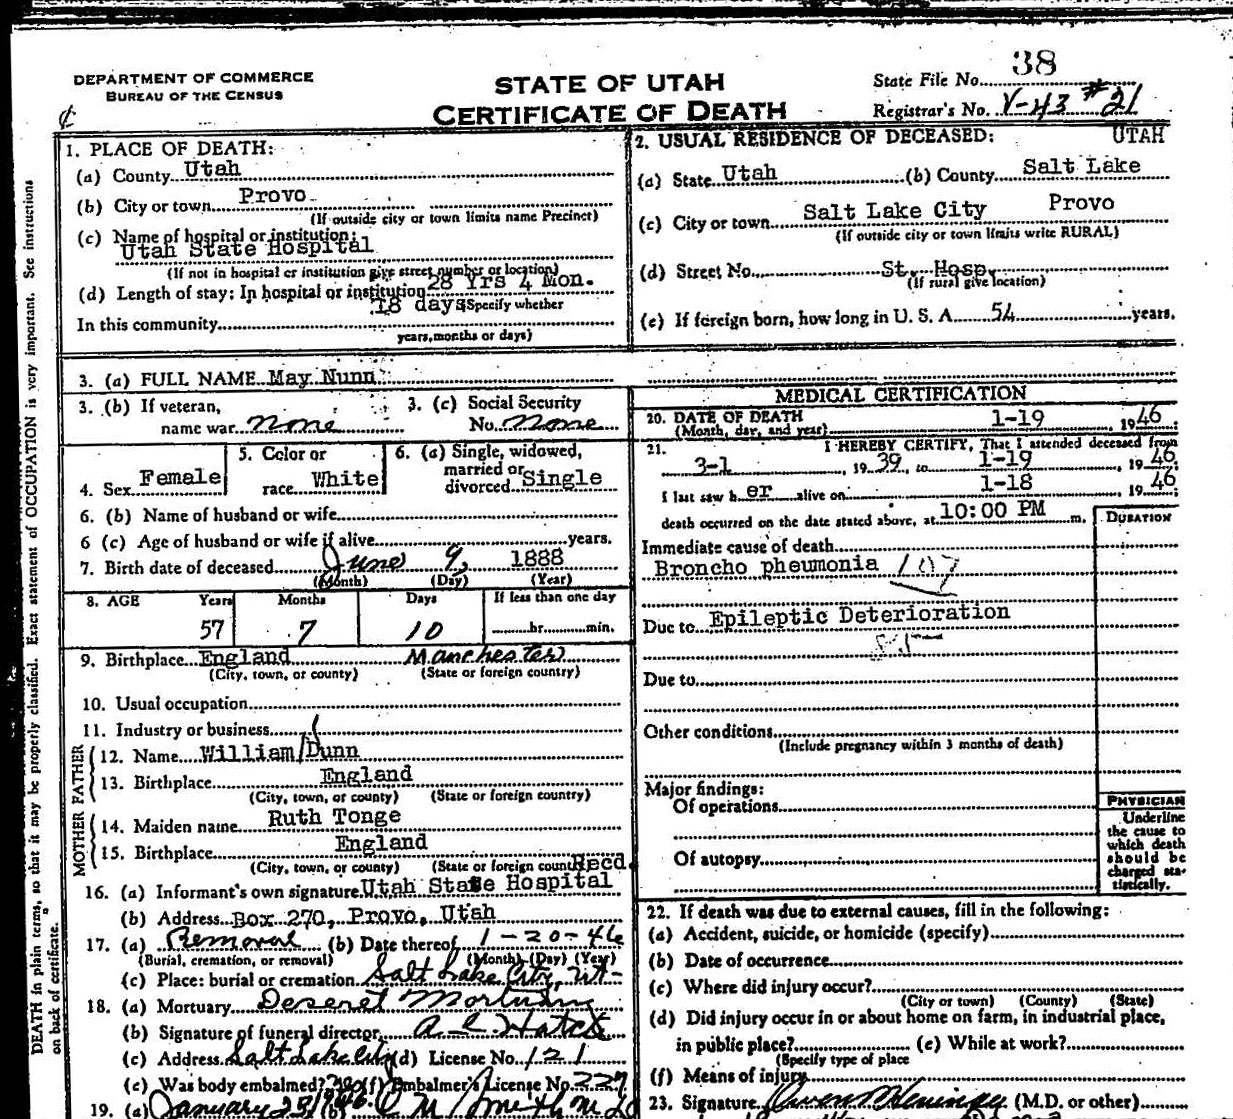 DEPARTMENT OF COMMERCE
BUREAU OF THE CENSUS
STATE OF UTAH
CERTIFICATE OF DEATH
State File No. 38
Registrar's No. V-43 #21
DEATH in plain terms, so that it may be properly classified. Exact statement of OCCUPATION is very important. See instructions
on back of certificate.
1. PLACE OF DEATH:
(a) County Utah
(b) City or town Provo
(If outside city or town limits name Precinct)
(c) Name of hospital or institution:
Utah State Hospital
(If not in hospital or institution give street number or location)
(d) Length of stay: In hospital or institution 28 Yrs 4 Mon.
18 days (Specify whether
In this community
years, months or days)
2. USUAL RESIDENCE OF DECEASED: UTAH
(a) State Utah (b) County Salt Lake
(c) City or town Salt Lake City Provo
(If outside city or town limits write RURAL)
(d) Street No. St. Hosp.
(If rural give location)
(e) If foreign born, how long in U. S. A. 54 years.
3. (a) FULL NAME May Nunn
3. (b) If veteran,
name war none
3. (c) Social Security
No. none
4. Sex Female
5. Color or
race White
6. (a) Single, widowed,
married or
divorced Single
6. (b) Name of husband or wife
6 (c) Age of husband or wife if alive years.
7. Birth date of deceased June 9, 1888
(Month) (Day) (Year)
8. AGE Years Months Days If less than one day
57 7 10 hr. min.
9. Birthplace England Manchester
(City, town, or county) (State or foreign country)
10. Usual occupation
11. Industry or business
FATHER
12. Name William Dunn
13. Birthplace England
(City, town, or county) (State or foreign country)
MOTHER
14. Maiden name Ruth Tonge
15. Birthplace England
(City, town, or county) (State or foreign country)
Recd.
16. (a) Informant's own signature Utah State Hospital
(b) Address Box 270, Provo, Utah
17. (a) Removal (b) Date thereof 1-20-46
(Burial, cremation, or removal) (Month) (Day) (Year)
(c) Place: burial or cremation Salt Lake City, Ut-
18. (a) Mortuary Deseret Mortuary
(b) Signature of funeral director
(c) Address Salt Lake City (d) License No. 121
(e) Was body embalmed? (f) Embalmer's License No. 227
19. (a) January 23/1946 (b)
MEDICAL CERTIFICATION
20. DATE OF DEATH
(Month, day, and year) 1-19, 1946
21. I HEREBY CERTIFY, That I attended deceased from
3-1, 1939, to 1-19, 1946
I last saw her alive on 1-18 1946;
death occurred on the date stated above, at 10:00 PM m.
DURATION
Immediate cause of death
Broncho pneumonia 107
Due to Epileptic Deterioration
85
Due to
Other conditions
(Include pregnancy within 3 months of death)
Major findings:
Of operations
Of autopsy
PHYSICIAN
Underline
the cause to
which death
should be
charged sta-
tistically.
22. If death was due to external causes, fill in the following:
(a) Accident, suicide, or homicide (specify)
(b) Date of occurrence
(c) Where did injury occur?
(City or town) (County) (State)
(d) Did injury occur in or about home on farm, in industrial place,
in public place? (e) While at work?
(Specify type of place
(f) Means of injury
23. Signature (M.D. or other)